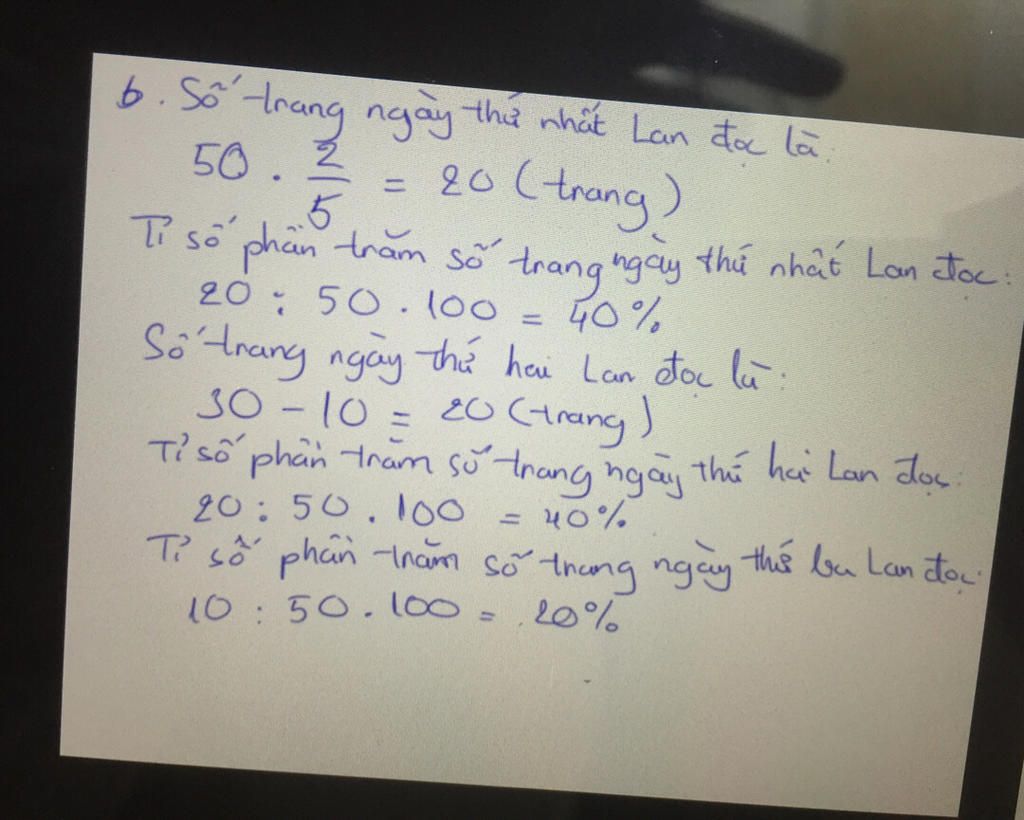 b. Số trang ngày thứ nhất Lan đọc là:
50 . 2/5 = 20 (trang)
Tỉ số phần trăm số trang ngày thứ nhất Lan đọc:
20 : 50 . 100 = 40%
Số trang ngày thứ hai Lan đọc là:
30 - 10 = 20 (trang)
Tỉ số phần trăm số trang ngày thứ hai Lan đọc:
20 : 50 . 100 = 40%
Tỉ số phần trăm số trang ngày thứ ba Lan đọc:
10 : 50 . 100 = 20%